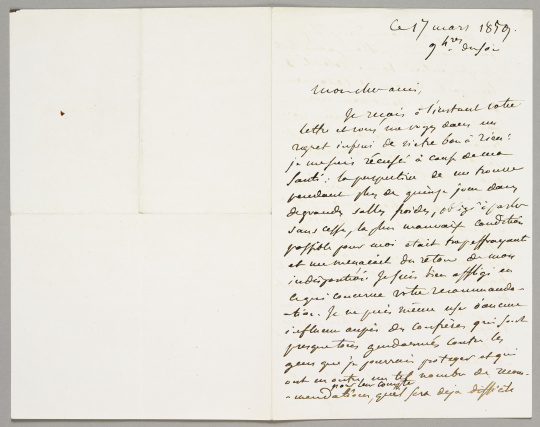 Ce 17 mars 1859.
9 hres du soir
Mon cher ami,
Je reçois à l'instant votre
lettre et vous me voyez dans un
regret infini de n'être bon à rien:
je me suis récusé à cause de ma
santé: la perspective de me trouver
pendant plus de quinze jours dans
de grandes salles froides, obligé à parler
sans cesse, la plus mauvaise condition
possible pour moi était trop effrayante
et me menaçait du retour de mon
indisposition. Je suis bien affligé en
ce qui concerne votre recommanda-
-tion. Je ne puis même user d'aucune
influence auprès des confrères qui sont
presque tous gendarmés contre les
gens que je pourrais protéger et qui
ont montré un tel nombre de recom-
pour leur compte
-mendations, qu'il sera déjà difficile